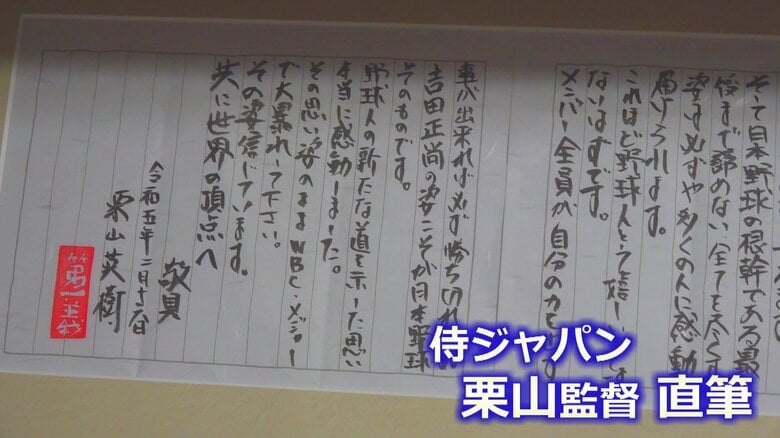 そして日本野球の根幹である最
後まで諦めない全てを尽くす
姿は必ずや多くの人に感動
届けられます。
これほど野球人として嬉しい
ないはずです。
メンバー全員が自分の力を出す
事が出来れば必ず勝ち切れ
吉田正尚の姿こそが日本野球
そのものです。
野球人の新たな道を示した思い
本当に感動しました。
その思い、姿のままWBC・メジャー
で大暴れして下さい。
その姿信じています。
共に世界の頂点へ
敬具
令和五年二月十六日
栗山英樹
侍ジャパン
栗山監督 直筆